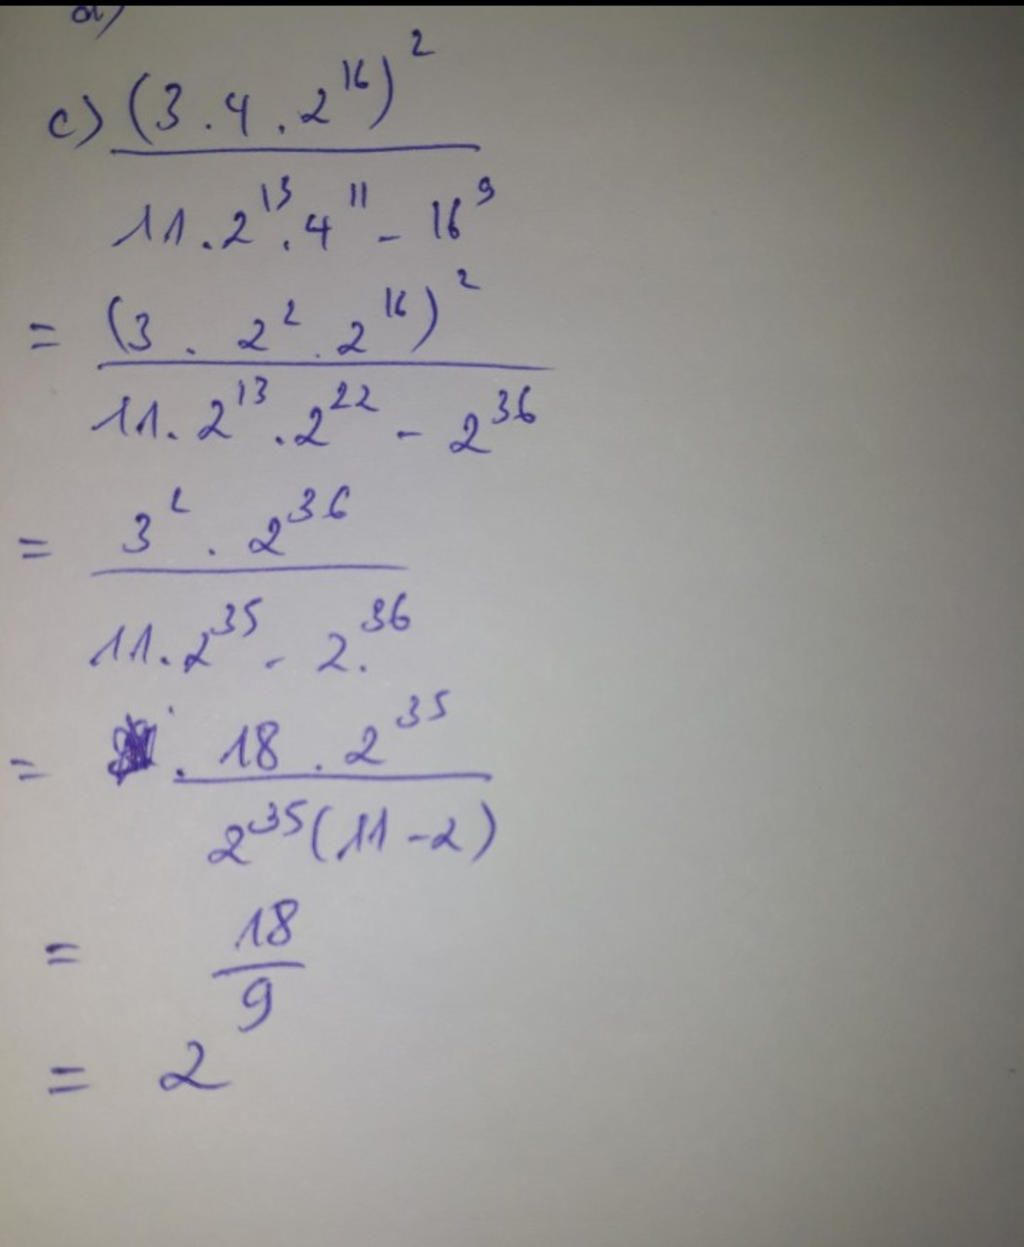 c) (3 . 4 . 2^16)^2
11 . 2^13 . 4^11 - 16^9
= (3 . 2^2 . 2^16)^2
11 . 2^13 . 2^22 - 2^36
= 3^2 . 2^36
11 . 2^35 - 2.^36
= . 18 . 2^35
2^35 (11 - 2)
= 18
9
= 2